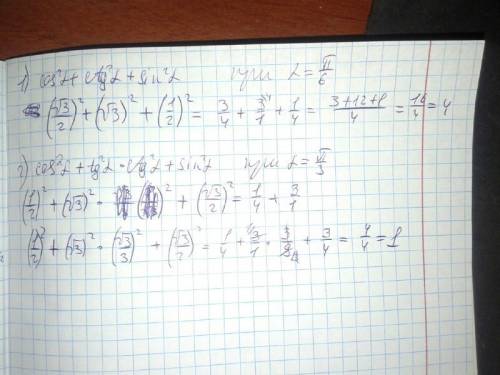 1) cos²α + ctg²α + sin²α при α = π/6
(√3/2)² + (√3)² + (1/2)² = 3/4 + 3/1 + 1/4 = (3+12+1)/4 = 16/4 = 4
2) cos²α + tg²α · ctg²α + sin²α при α = π/3
(1/2)² + (√3)² · ( )² + (√3/2)² = 1/4 + 3/1
(1/2)² + (√3)² · (√3/3)² + (√3/2)² = 1/4 + 3/1 · 3/9 + 3/4 = 4/4 = 1